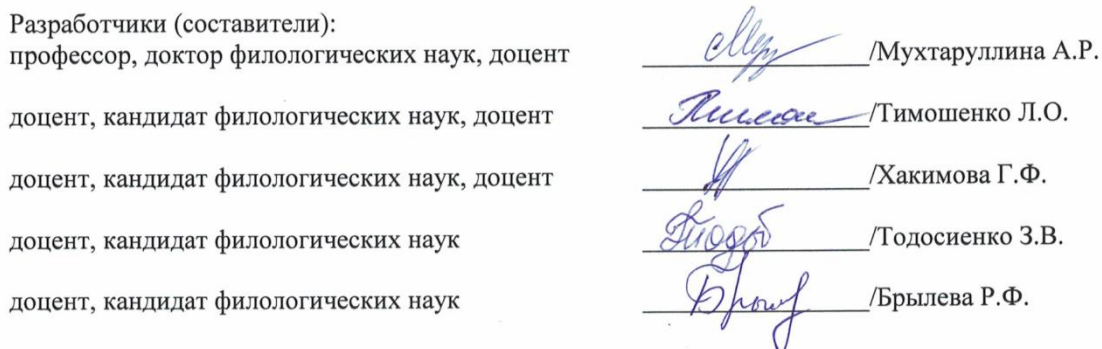 Разработчики (составители):
профессор, доктор филологических наук, доцент /Мухтаруллина А.Р.
доцент, кандидат филологических наук, доцент /Тимошенко Л.О.
доцент, кандидат филологических наук, доцент /Хакимова Г.Ф.
доцент, кандидат филологических наук /Тодосиенко З.В.
доцент, кандидат филологических наук /Брылева Р.Ф.